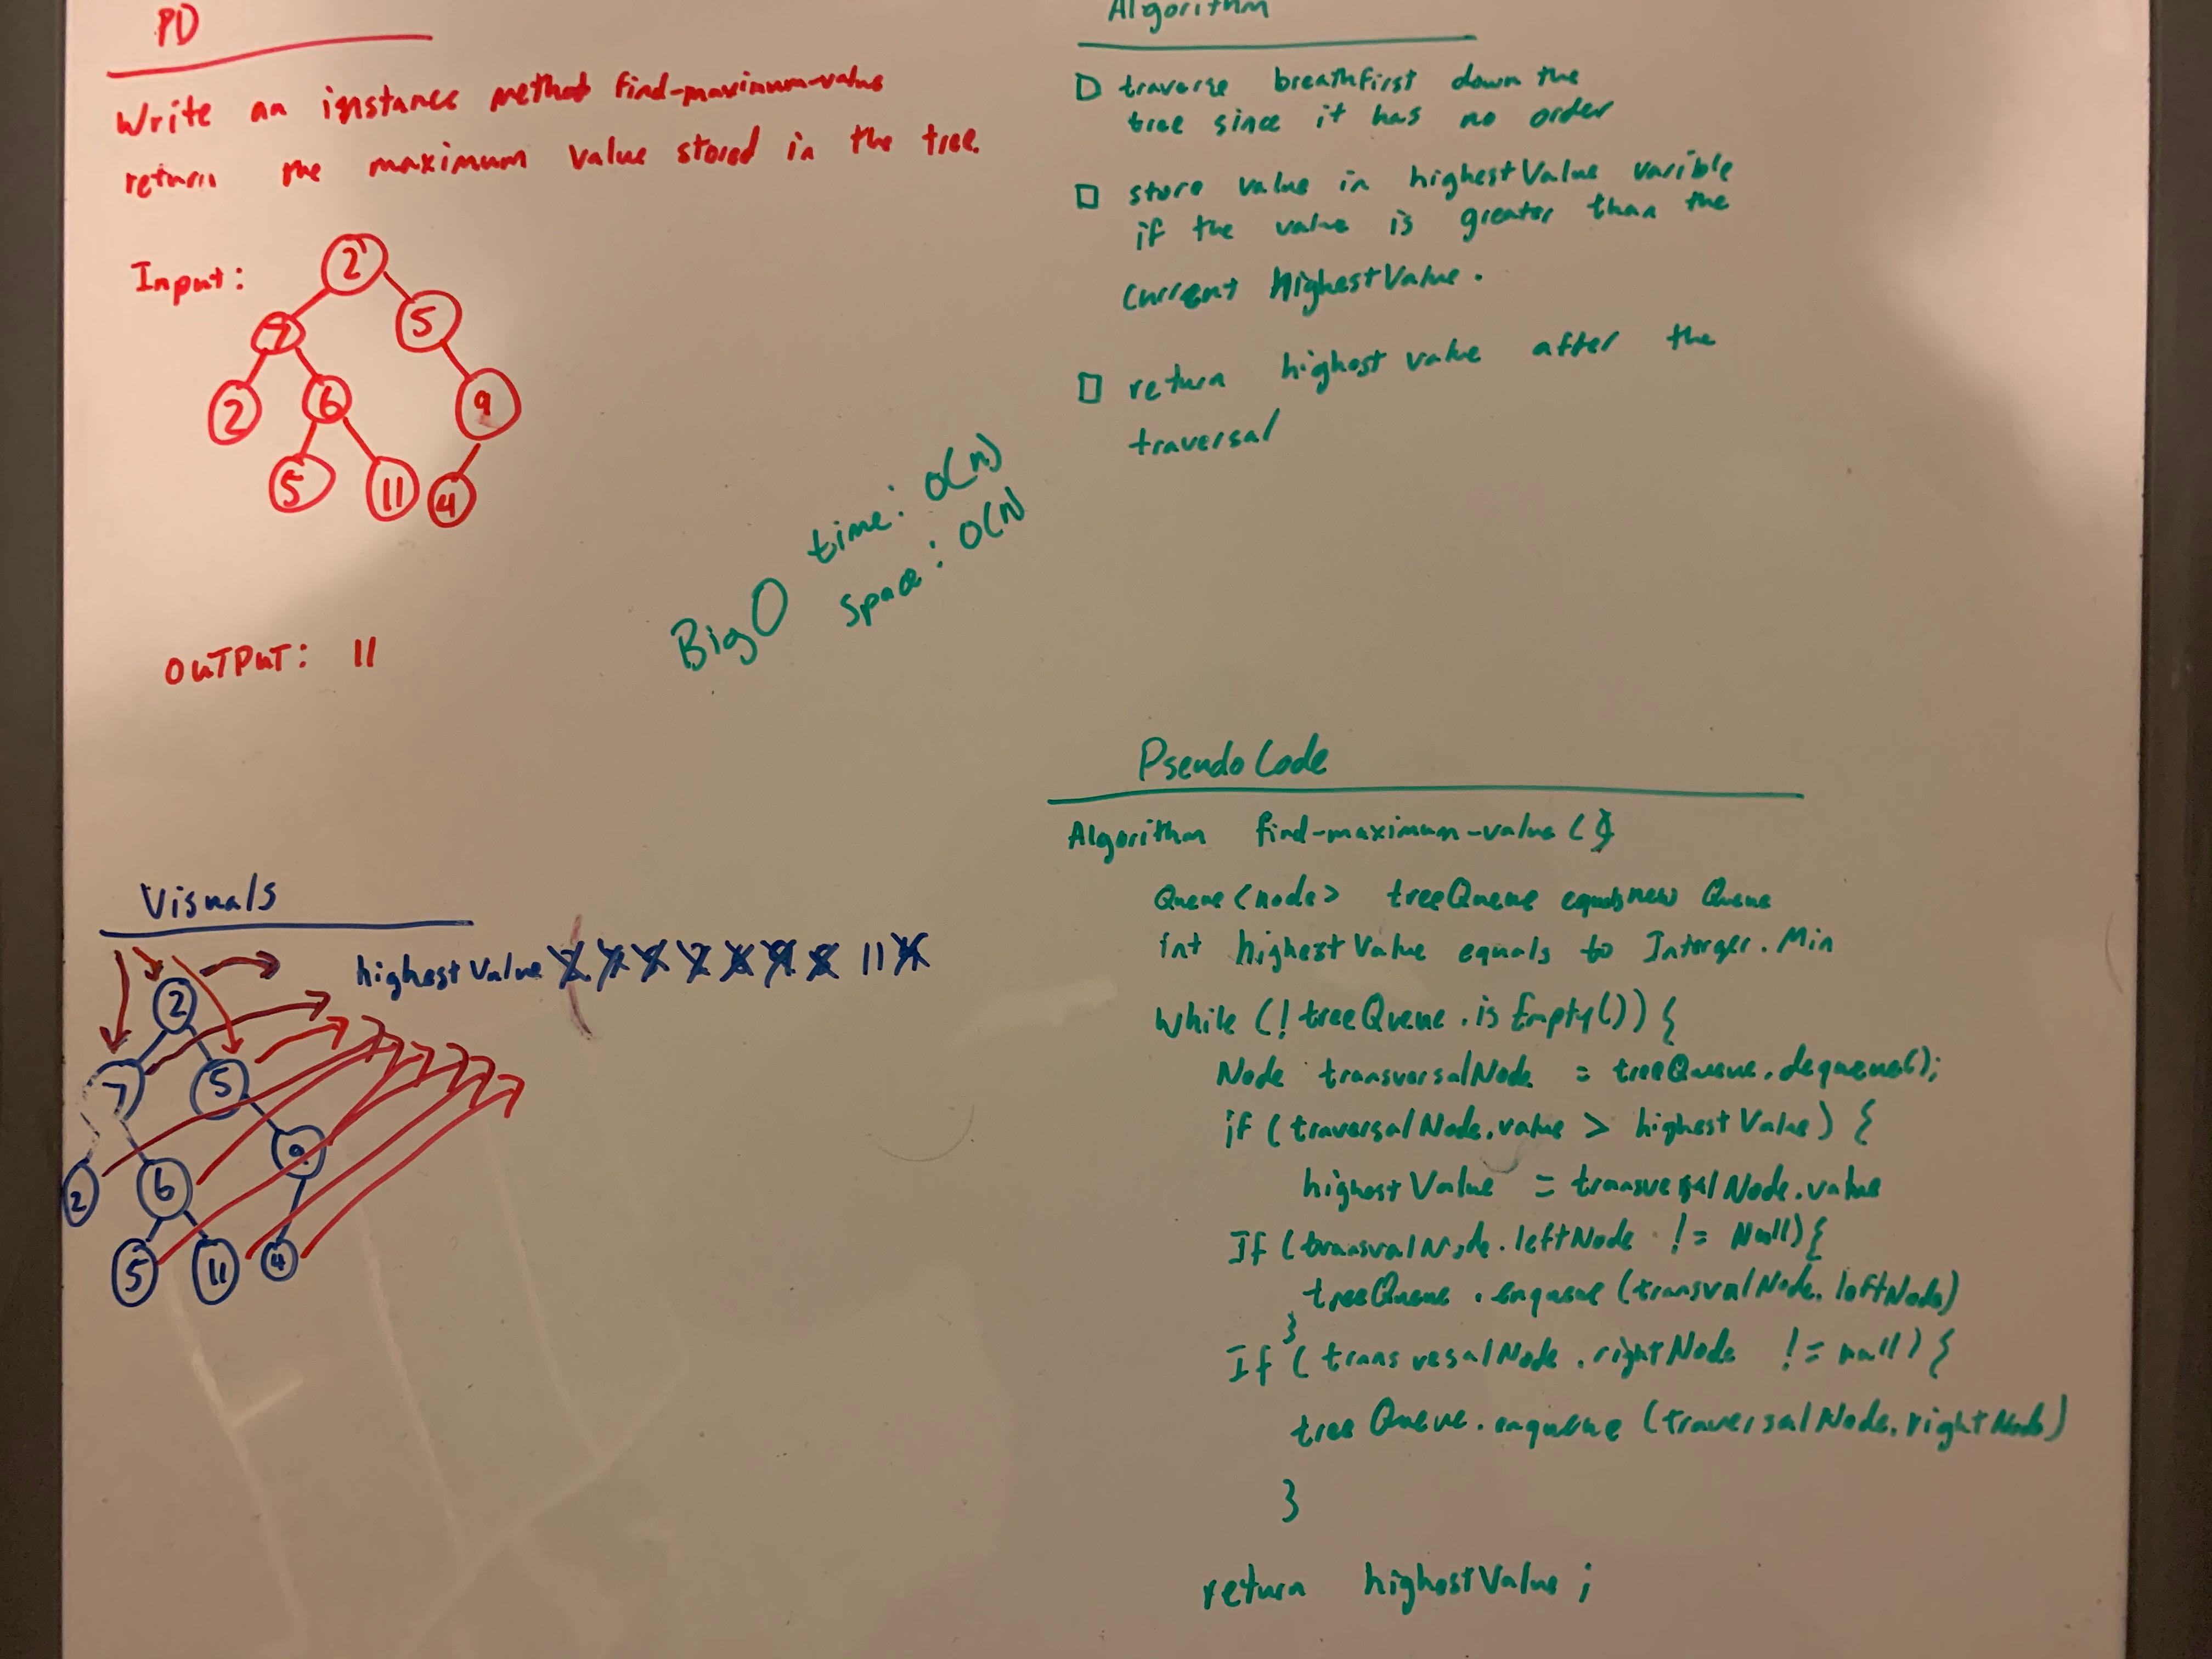 PD
Write an instance method find-maximum-value
return the maximum value stored in the tree.
Input:
2
7
5
2
6
9
5
11
4
OUTPUT: 11
Big O
time: O(n)
space: O(N
Visuals
highest Value
11
2
7
5
2
6
9
5
11
4
Algorithm
traverse breathfirst down the
tree since it has no order
store value in highestValue varible
if the value is greater than the
current highestValue.
return highest value after the
traversal
Pseudo Code
Algorithm find-maximum-value ( )
Queue <node> treeQueue equals new Queue
int highest Value equals to Interger.Min
While (! treeQueue.isEmpty()) {
Node transversalNode = treeQueue.dequeue();
if (traversalNode.value > highest Value) {
highest Value = transversalNode.value
If (transvalNode.leftNode != Null){
treeQueue.enqueue (transvalNode.leftNode)
}
If (transvesalNode.rightNode != null) {
tree Queue.enqueue (traversalNode.rightNode)
}
return highestValue;